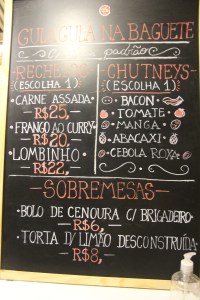 GULA GULA NA BAGUETE
padrão
RECHEIOS
(ESCOLHA 1)
• CARNE ASSADA •
R$25,
• FRANGO AO CURRY •
R$20,
• LOMBINHO •
R$22,
CHUTNEYS
(ESCOLHA 1)
• BACON •
• TOMATE •
• MANGA •
• ABACAXI •
• CEBOLA ROXA •
SOBREMESAS
• BOLO DE CENOURA C/ BRIGADEIRO
R$6,
• TORTA D/ LIMÃO DESCONSTRUÍDA
R$8,